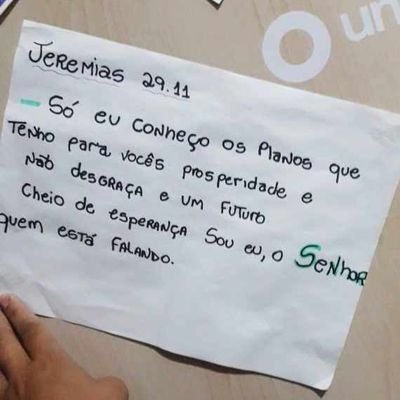 un
Jeremias 29.11
– Só eu conheço os planos que
tenho para vocês prosperidade e
não desgraça e um futuro
cheio de esperança sou eu, o Senhor
quem está falando.